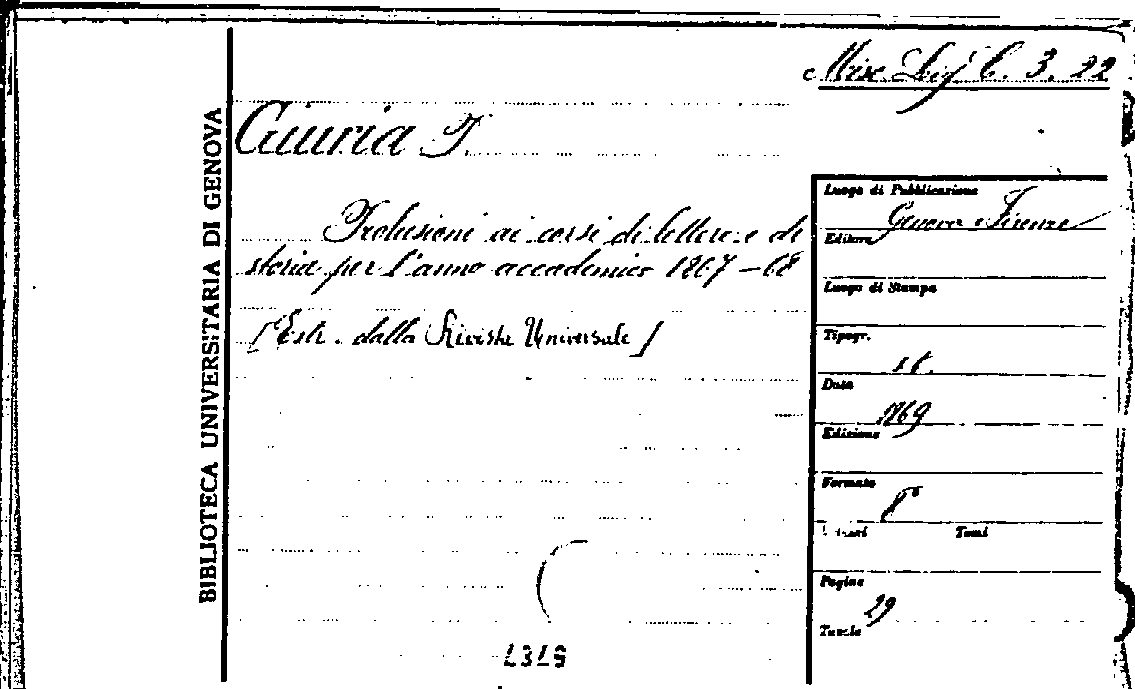 Misc Lig C. 3. 22
BIBLIOTECA UNIVERSITARIA DI GENOVA
Giuria P.
Prolusioni ai corsi di lettere e di
storia per l'anno accademico 1867-68
[Estr. dalla Rivista Universale]
Luogo di Pubblicazione
Genova e Firenze
Editore
Luogo di Stampa
Tipogr.
Data
1869
Edizione
Formato
8°
Tomi
Pagine
29
Tavole